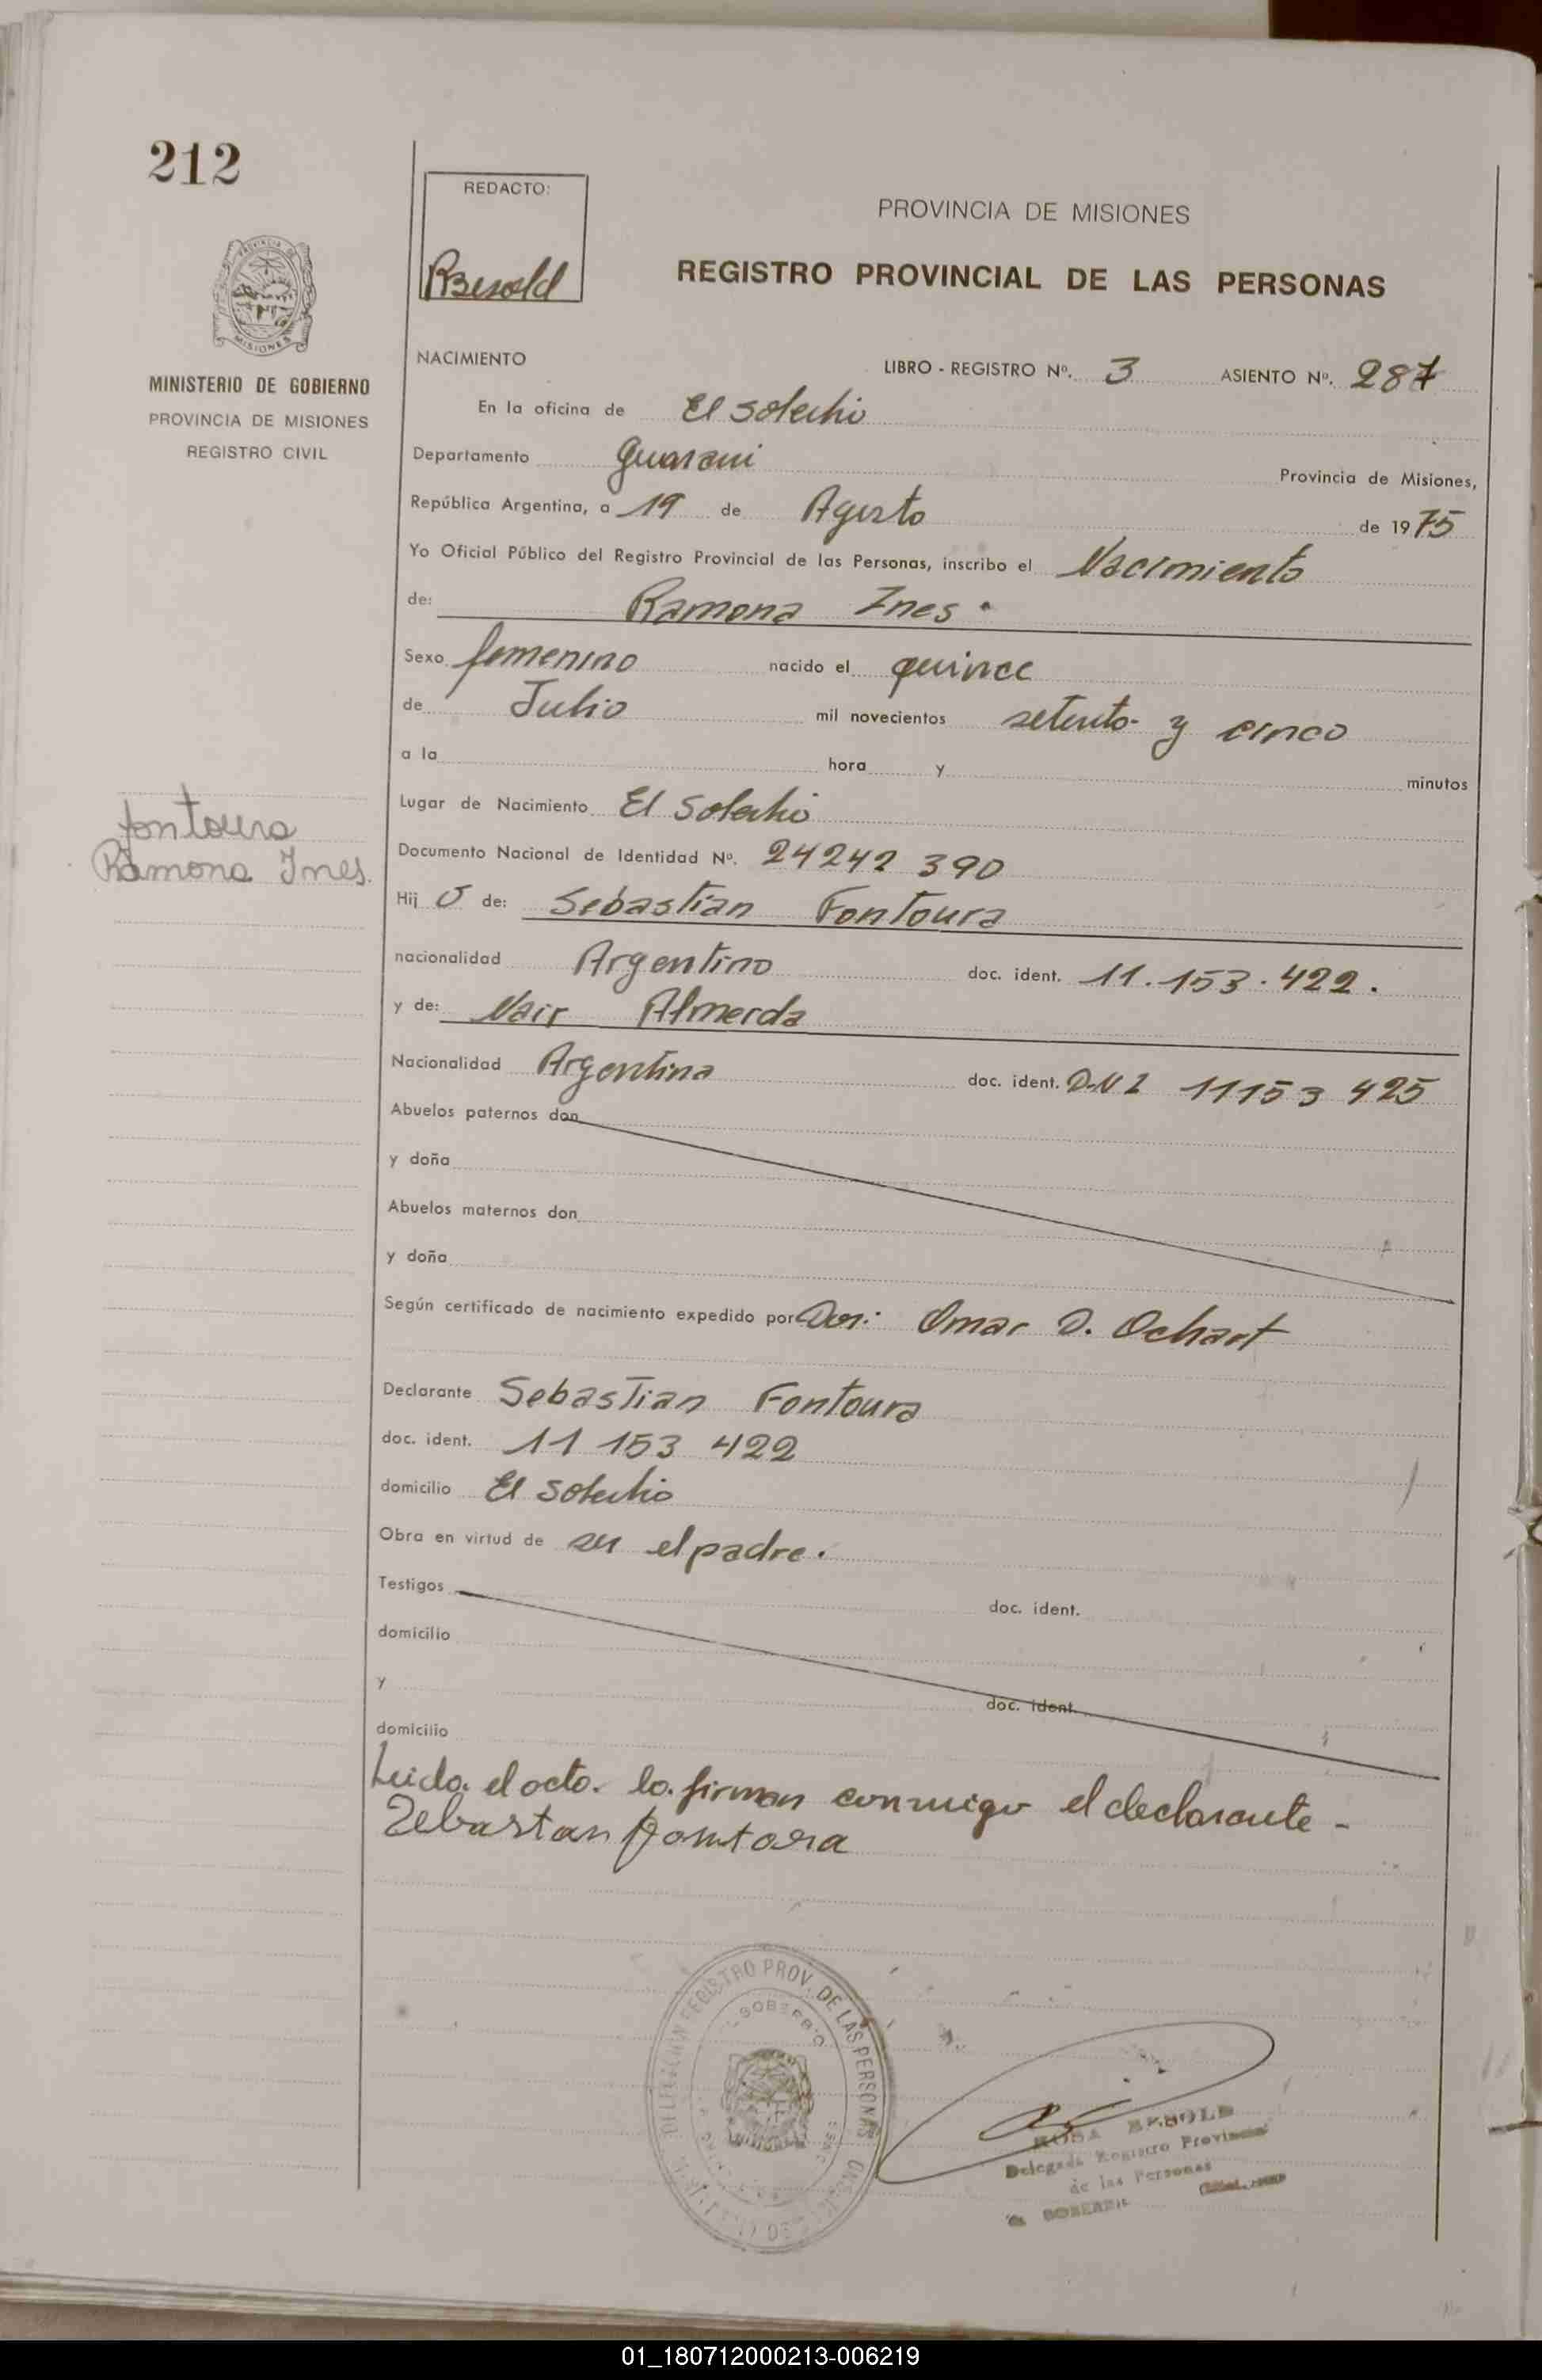 212
REDACTO:
RBesold
PROVINCIA DE MISIONES
REGISTRO PROVINCIAL DE LAS PERSONAS
MISIONES
MINISTERIO DE GOBIERNO
PROVINCIA DE MISIONES
REGISTRO CIVIL
NACIMIENTO LIBRO - REGISTRO Nº. 3 ASIENTO Nº. 287
En la oficina de El Soberbio
Departamento Guarani Provincia de Misiones,
República Argentina, a 19 de Agosto de 1975
Yo Oficial Público del Registro Provincial de las Personas, inscribo el Nacimiento
de: Ramona Ines.
Sexo femenino nacido el quince
de Julio mil novecientos setenta y cinco
a la hora y minutos
Lugar de Nacimiento El Soberbio
fontoura
Ramona Ines.
Documento Nacional de Identidad Nº. 24242 390
Hij a de: Sebastian Fontoura
nacionalidad Argentino doc. ident. 11.153.422.
y de: Nair Almerda
Nacionalidad Argentina doc. ident. D.N I 11153 425
Abuelos paternos don
y doña
Abuelos maternos don
y doña
Según certificado de nacimiento expedido por Dor.: Omar D. Ochart
Declarante Sebastian Fontoura
doc. ident. 11 153 422
domicilio El Soberbio
Obra en virtud de ser el padre.
Testigos doc. ident.
domicilio
y doc. ident.
domicilio
Leida el acta la firman conmigo el declarante -
Sebastan fomtora
DELEGACION REGISTRO PROV. DE LAS PERSONAS
SOBERBIO
ROSA BESOLD
Delegada Registro Provincial
de las Personas
SOBERBIO
01_180712000213-006219